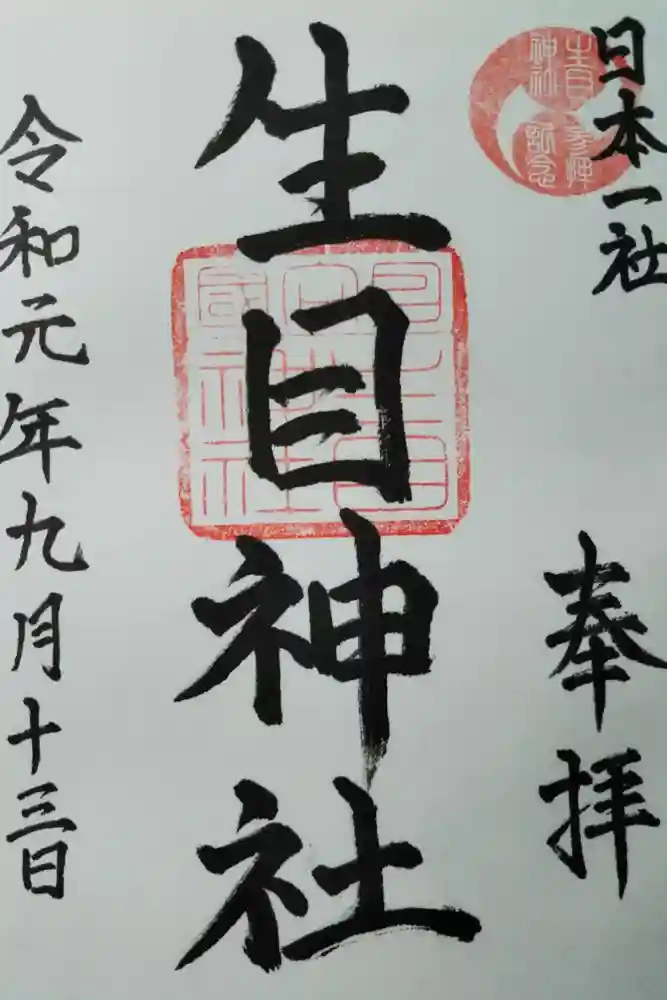 日本一社
奉拝
生目神社参拝記念
生目神社
令和元年九月十三日